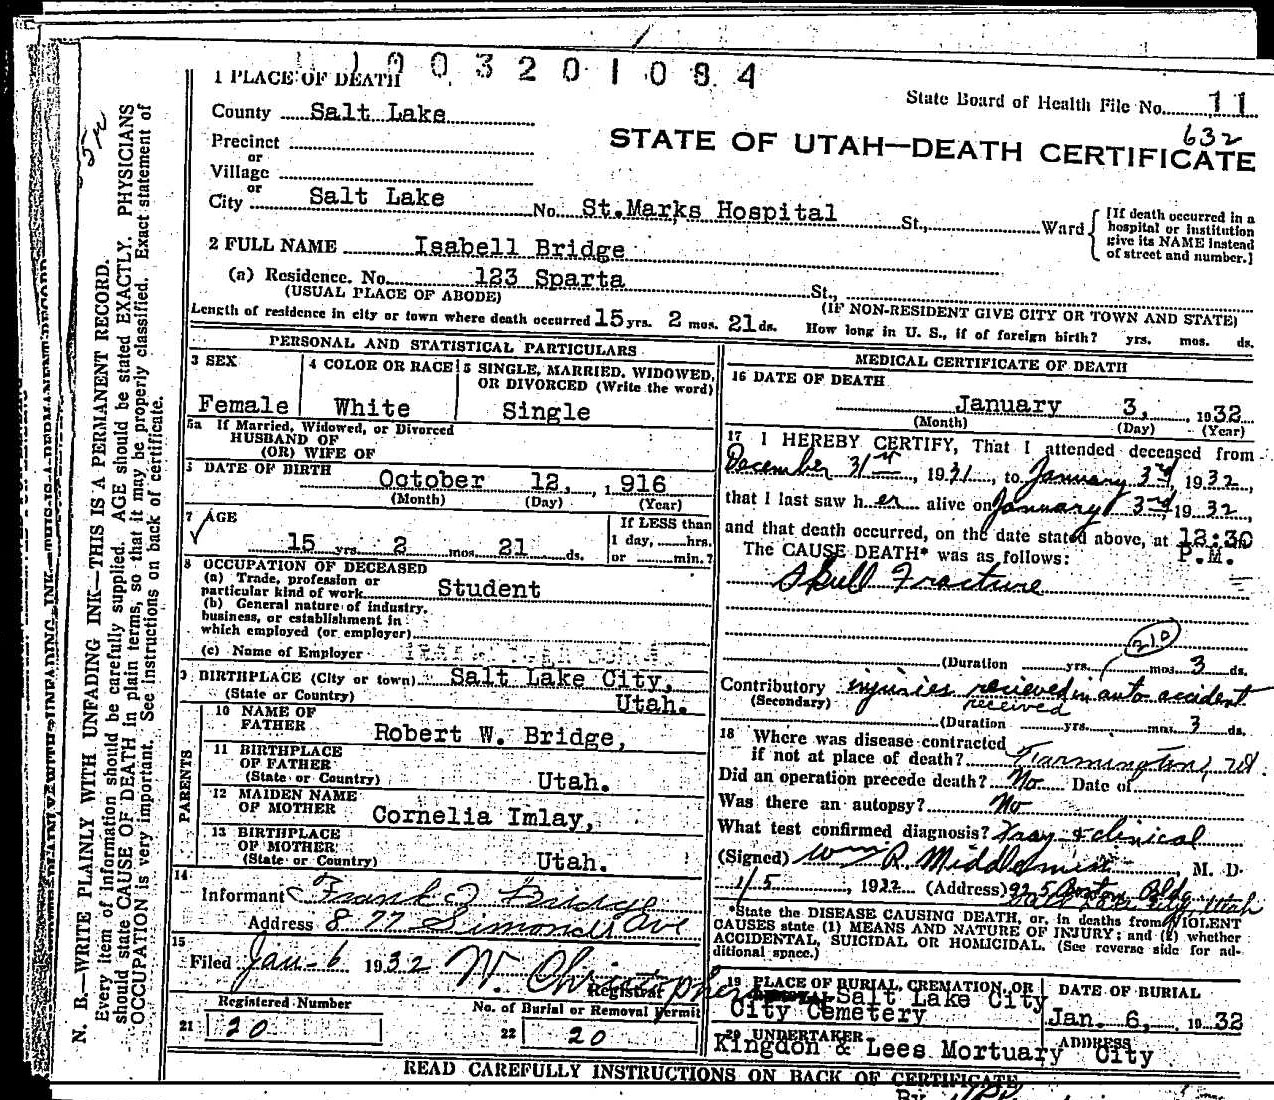 1003201084
1 PLACE OF DEATH
State Board of Health File No. 11
632
County Salt Lake
STATE OF UTAH—DEATH CERTIFICATE
Precinct
or
Village
or
City Salt Lake No. St.Marks Hospital St., Ward
[If death occurred in a
hospital or institution
give its NAME instead
of street and number.]
2 FULL NAME Isabell Bridge
(a) Residence. No. 123 Sparta St.,
(USUAL PLACE OF ABODE) (IF NON-RESIDENT GIVE CITY OR TOWN AND STATE)
Length of residence in city or town where death occurred 15 yrs. 2 mos. 21 ds. How long in U. S., if of foreign birth? yrs. mos. ds.
PERSONAL AND STATISTICAL PARTICULARS
3 SEX
Female
4 COLOR OR RACE
White
5 SINGLE, MARRIED, WIDOWED,
OR DIVORCED (Write the word)
Single
5a If Married, Widowed, or Divorced
HUSBAND OF
(OR) WIFE OF
DATE OF BIRTH
October 12, 1916
(Month) (Day) (Year)
7 AGE
15 yrs. 2 mos. 21 ds.
If LESS than
1 day, hrs.
or min.?
8 OCCUPATION OF DECEASED
(a) Trade, profession or
particular kind of work Student
(b) General nature of industry,
business, or establishment in
which employed (or employer)
(c) Name of Employer
9 BIRTHPLACE (City or town) Salt Lake City,
(State or Country) Utah.
PARENTS
10 NAME OF
FATHER Robert W. Bridge,
11 BIRTHPLACE
OF FATHER
(State or Country) Utah.
12 MAIDEN NAME
OF MOTHER Cornelia Imlay,
13 BIRTHPLACE
OF MOTHER
(State or Country) Utah.
14
Informant Frank Bridge
Address 877 Simondis Ave
15
Filed Jan-6 1932 W. Christopher
Registrar
Registered Number
21 20
No. of Burial or Removal Permit
22 20
MEDICAL CERTIFICATE OF DEATH
16 DATE OF DEATH
January 3, 1932
(Month) (Day) (Year)
17 I HEREBY CERTIFY, That I attended deceased from
December 31st, 1931, to January 3rd, 1932,
that I last saw her alive on January 3rd, 1932,
and that death occurred, on the date stated above, at 12:30
P.M.
The CAUSE DEATH* was as follows:
Skull Fracture
210
(Duration yrs. mos. 3 ds.
Contributory injuries recieved in auto accident
(Secondary) received
(Duration yrs. mos. 3 ds.
18 Where was disease contracted
if not at place of death? Farmington, Ut.
Did an operation precede death? No Date of
Was there an autopsy? No
What test confirmed diagnosis? Xray & clinical
(Signed) Wm R. Middlemiss M. D.
1/5, 1932 (Address) 925 Boston Bldg
Salt Lake City, Utah
*State the DISEASE CAUSING DEATH, or, in deaths from VIOLENT
CAUSES state (1) MEANS AND NATURE OF INJURY; and (2) whether
ACCIDENTAL, SUICIDAL OR HOMICIDAL. (See reverse side for ad-
ditional space.)
19 PLACE OF BURIAL, CREMATION, OR
Salt Lake City
City Cemetery
DATE OF BURIAL
Jan. 6, 1932
20 UNDERTAKER
Kingdon & Lees Mortuary
ADDRESS
City
READ CAREFULLY INSTRUCTIONS ON BACK OF CERTIFICATE
By
N. B.—WRITE PLAINLY WITH UNFADING INK—THIS IS A PERMANENT RECORD.
Every item of information should be carefully supplied. AGE should be stated EXACTLY. PHYSICIANS
should state CAUSE OF DEATH in plain terms, so that it may be properly classified. Exact statement of
OCCUPATION is very important. See instructions on back of certificate.